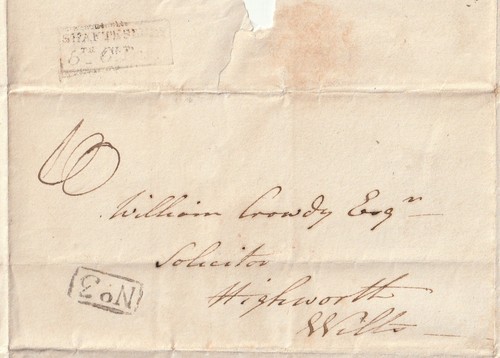 SHAFTES
6
William Crowdy Esqr
Solicitor
Highworth
Wilts
No. 3